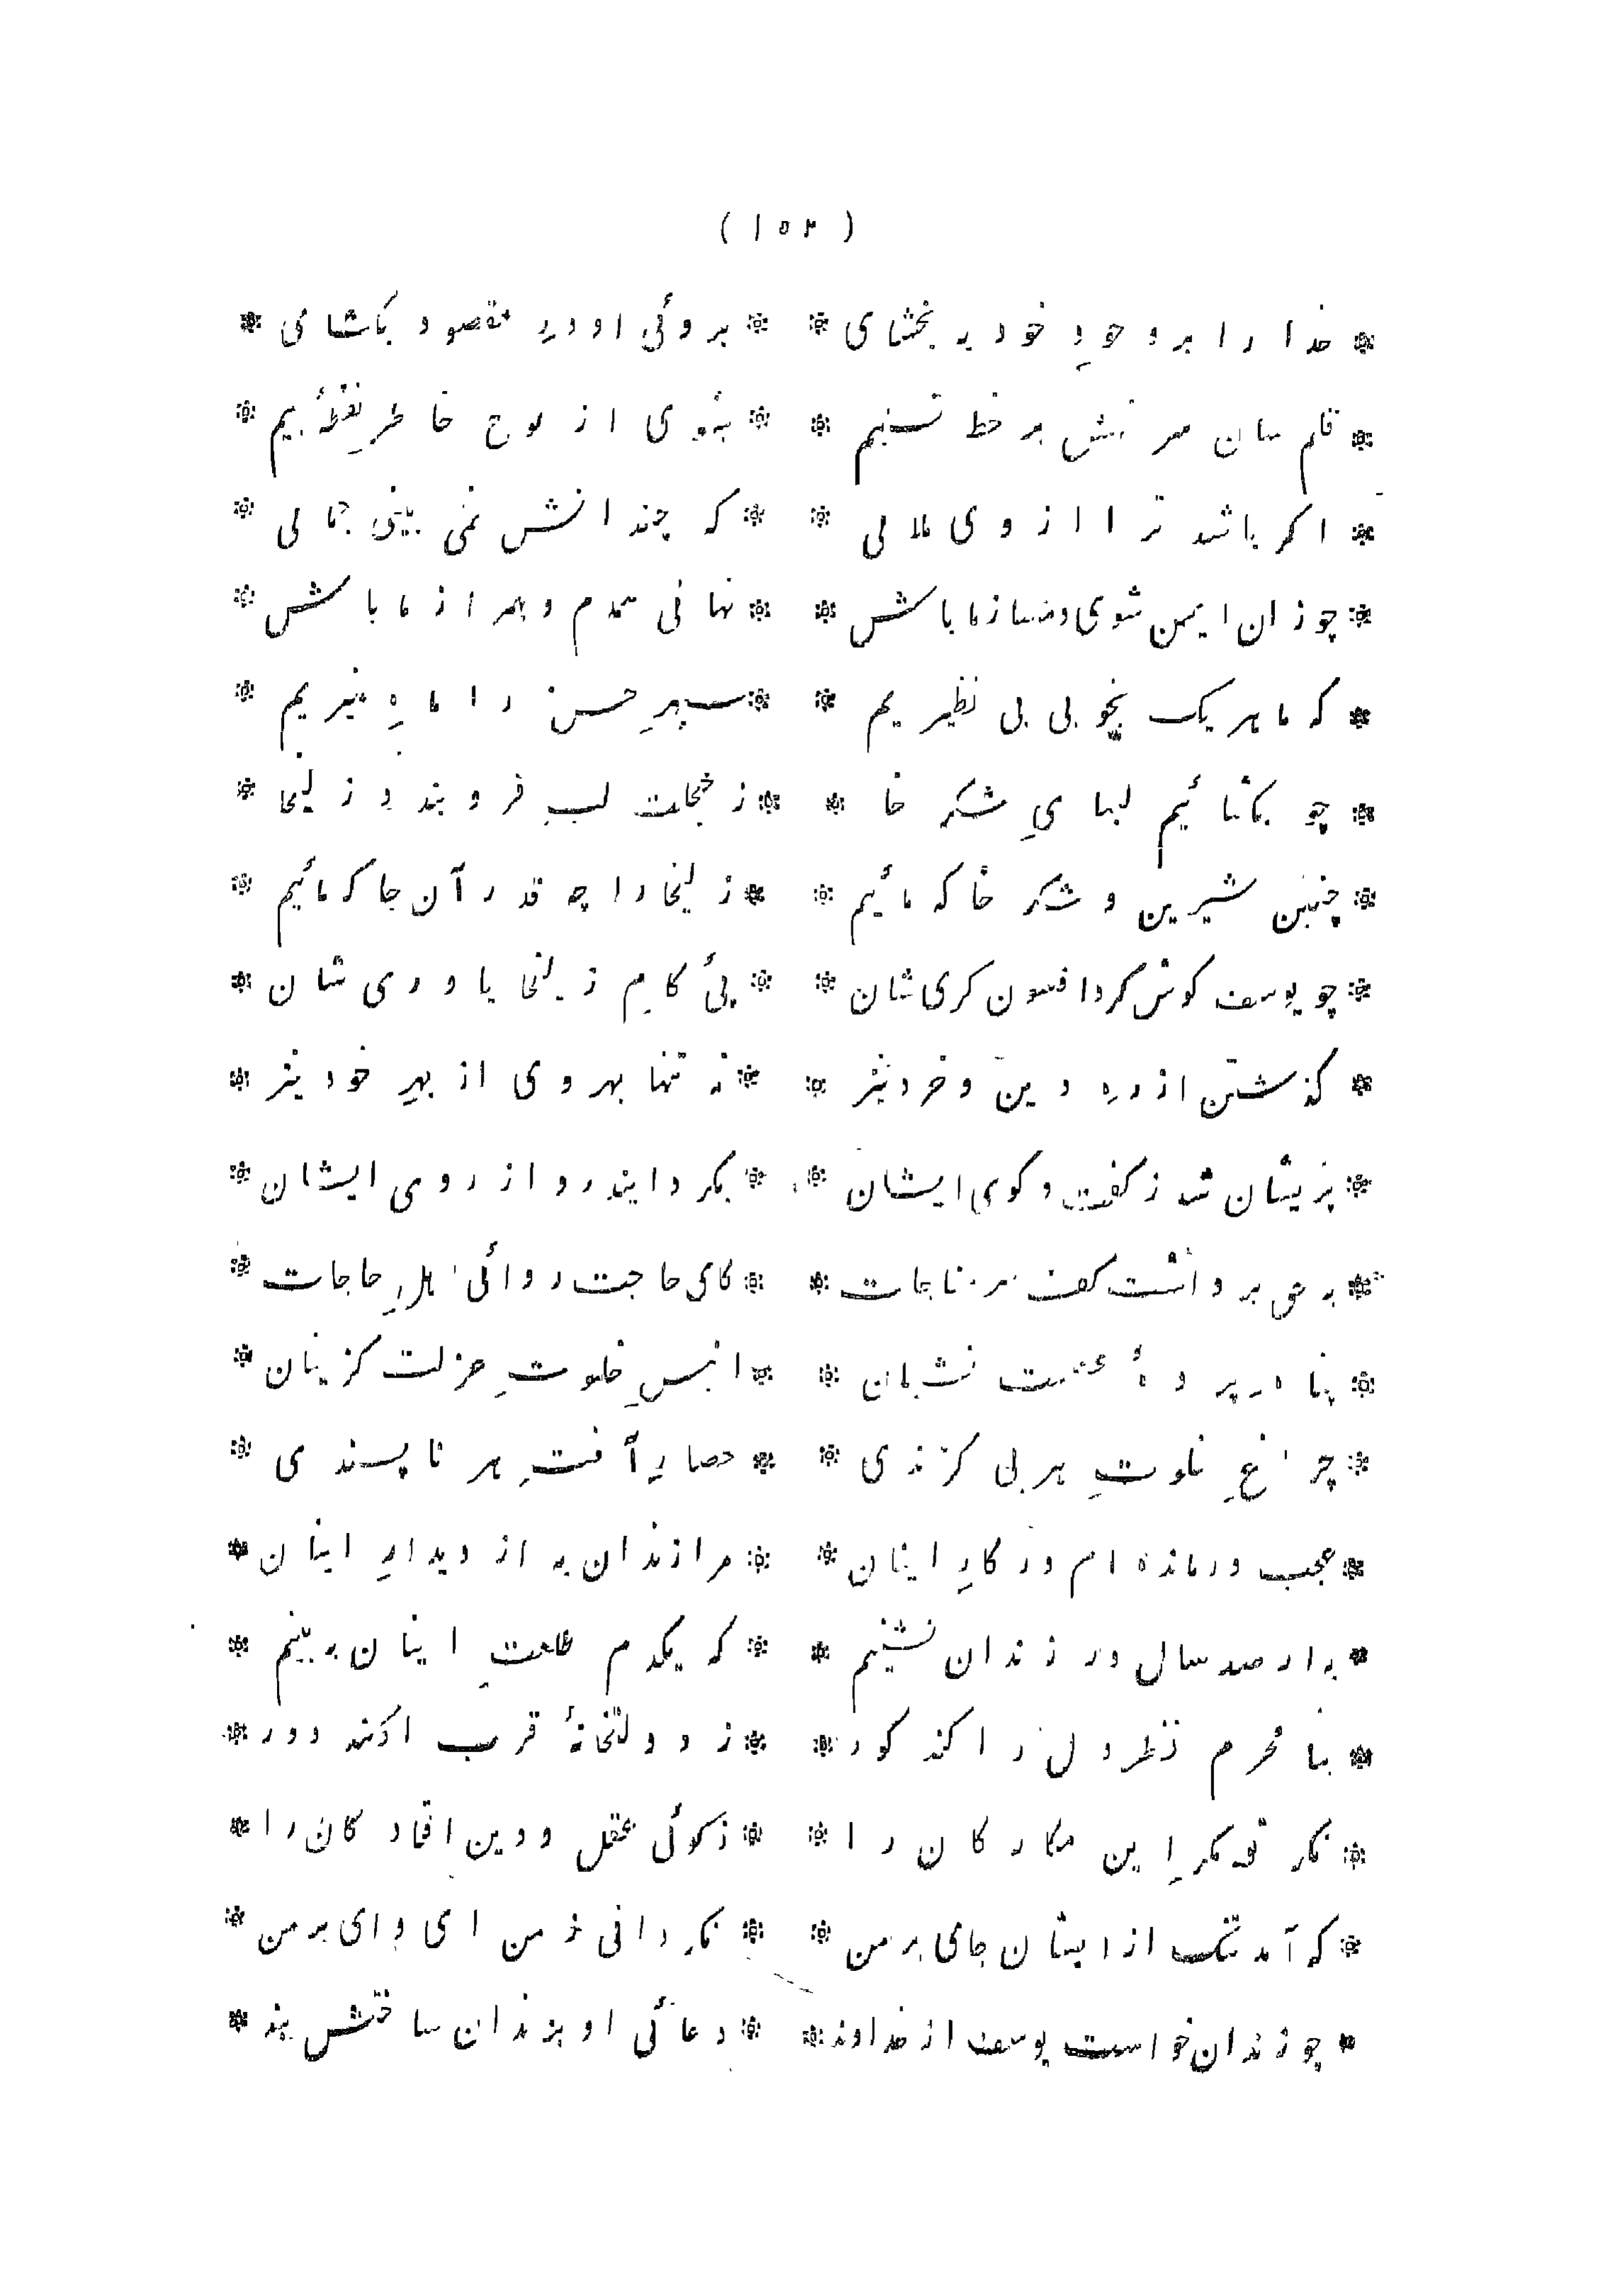 ( ۱۵۲ )
* خدا را بر وجودِ خود به بخشای * * بروئی او درِ مقصود بکشای *
* قلم سان سر نهش بر خط تسلیم * * بشوی از لوح خاطر نقطۀ بیم *
* اکر باشد ترا از وی ملالی * * که چندانش نمی بینی جمالی *
* چو زان ایمن شوی دمساز ما باش * * نهانی همدم و همراز ما باش *
* که ما هر یک بخوبی بی نظیریم * * سپهرِ حسن را ماهِ منیریم *
* چو بکشائیم لبهایِ شکر خا * * ز خجلت لب فرو بندد زلیخا *
* چنین شیرین و شکر خا که مائیم * * زلیخا را چه قدر آن جا که مائیم *
* چو یوسف کوش کرد افسون کری شان * * پئ کامِ زلیخا یاوری شان *
* کذشتن از رهِ دین و خرد نیز * * نه تنها بهر وی از بهرِ خود نیز *
* پریشان شد ز کفت و کوی ایشان * * بکردانید رو از روی ایشان *
* به حق برداشت کف بهر مناجات * * کای حاجت روائی اهلِ حاجات *
* پناه پردۀ عصمت نشینان * * انیسِ خلوتِ عزلت کزینان *
* چراغِ خلوتِ هر بی کزندی * * حصارِ آفتِ هر ناپسندی *
* عجب درمانده ام در کارِ اینان * * مرا زندان به از دیدارِ اینان *
* به ار صد سال در زندان نشینم * * که یکدم طلعتِ اینان به بینم *
* بنا محرم نظر دل را کند کور * * ز دولتخانۀ قرب افکند دور *
* نکر تو مکرِ این مکارکان را * * ز کوئی عقل و دین افتادکان را *
* که آمد تنک از ایشان جای بر من * * نکردانی ز من ای وای بر من *
* چو زندان خواست یوسف از خداوند * * دعائی او بزندان ساختش بند *